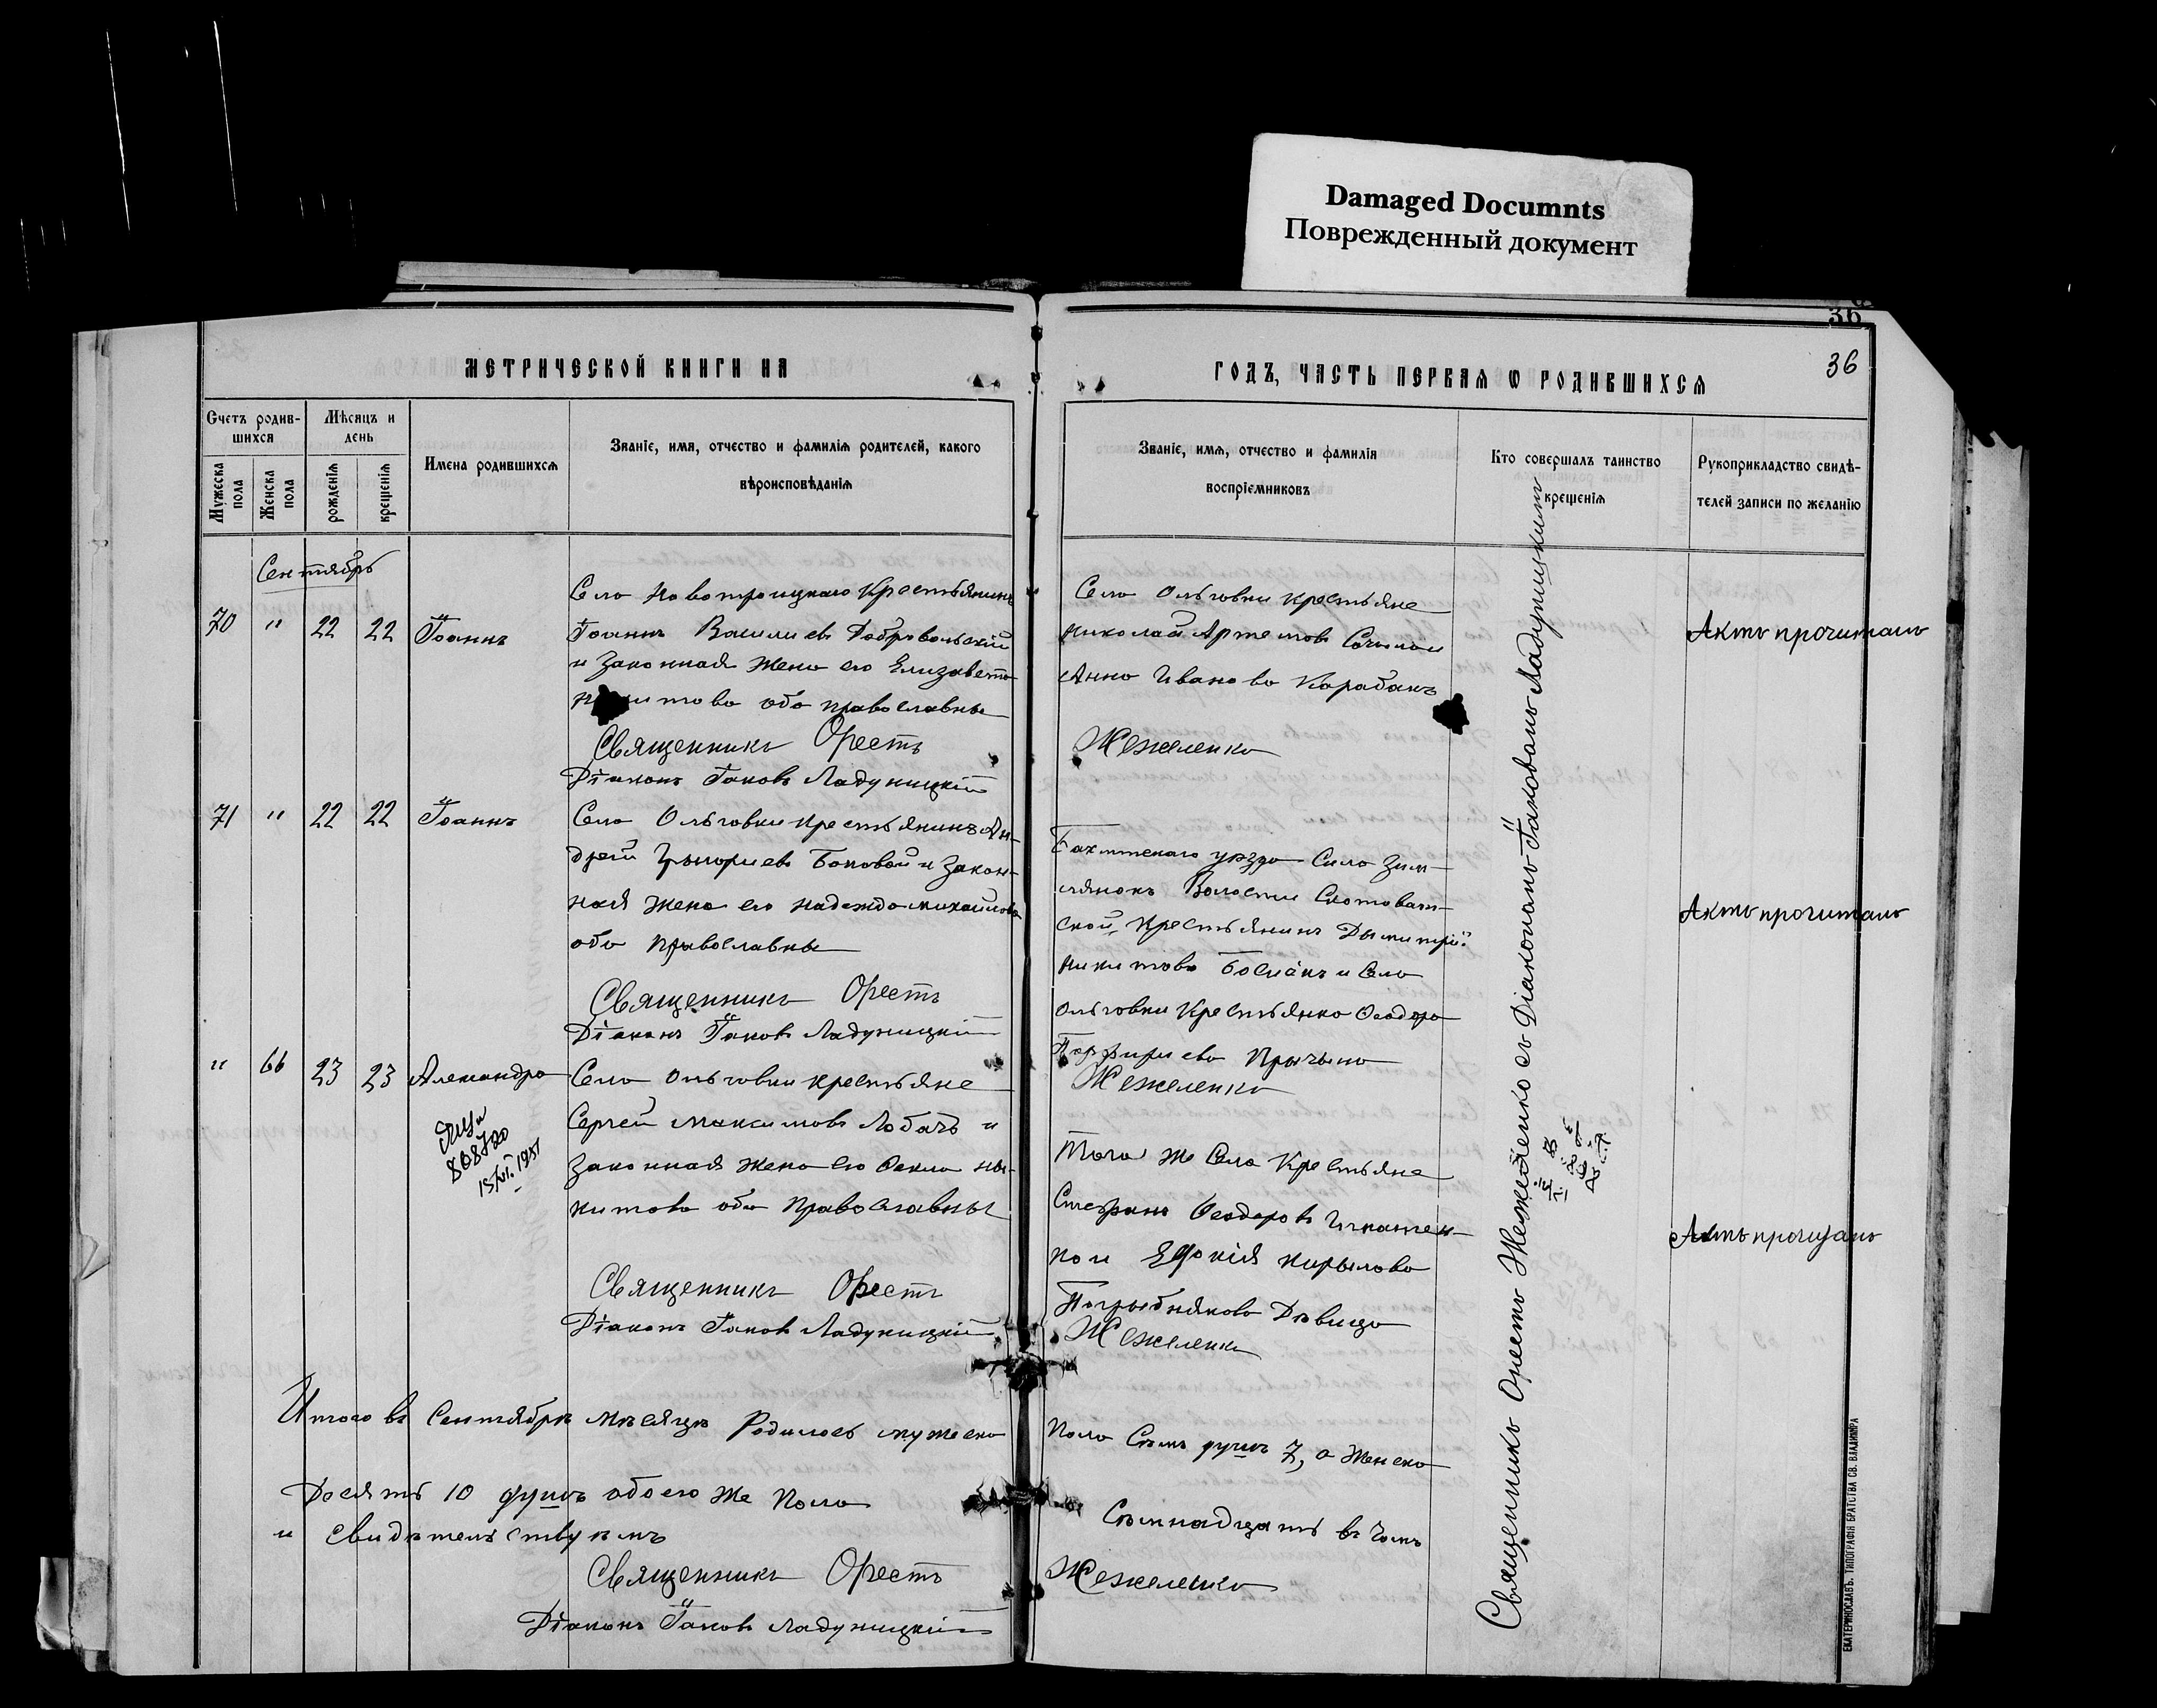 Damaged Documnts
Поврежденный документ
36
36
МЕТРИЧЕСКОЙ КНИГИ НА
ГОДЪ, ЧАСТЬ ПЕРВАЯ Ѡ РОДИВШИХСЯ
Счетъ родив-
шихся
Мужеска
пола
Женска
пола
Мѣсяцъ и
день
рожденія
крещенія
Имена родившихся
Званіе, имя, отчество и фамилія родителей, какого
вѣроисповѣданія
Званіе, имя, отчество и фамилія
воспріемниковъ
Кто совершалъ таинство
крещенія
Рукоприкладство свидѣ-
телей записи по желанію
Сентябрь
70 " 22 22 Іоаннъ
Село Новотроицкаго Крестьянинъ
Іоаннъ Василиевъ Добровольскій
и Законная жена его Елизавета
оба православны
Священникъ Орестъ
Діаконъ Іаковъ Ладуницкій
Село Ольговки крестьяне
Николай Артемовъ
Анна Иванова Карабанъ
Жежеленко
Актъ прочиталъ
71 " 22 22 Іоаннъ
Село Ольговки крестьянинъ Ан-
дрей Григориевъ Боковой и Закон-
ная жена его Надежда Михайлова
оба Православны
Священникъ Орестъ
Діаконъ Іаковъ Ладуницкій
Бахмтскаго уѣзда Село Зим-
Волости Скотоват-
ской, Крестьянинъ Дымитрій
Никитовъ и Село
Ольговки Крестьянка Ѳеодора
Порфириева
Жежеленко
Актъ прочиталъ
" 66 23 23 Александра
808720
1951
Село Ольговки крестьяне
Сергей Максимовъ Лобачъ и
Законная жена его Ѳекла Ни-
китова оба Православны
Священникъ Орестъ
Діаконъ Іаковъ Ладуницкій
Того же Села Крестьяне
Стефанъ Ѳеодоровъ Игнатен-
ко и Кирылова
Погрыбнякова Дѣвица
Жежеленко
Актъ прочиталъ
Священникъ Орестъ Жежеленко съ Діакономъ Іаковомъ Ладуницкимъ
Итого въ Сентябрѣ мѣсяцѣ Родилось мужеска
пола Сѣмь душъ 7, а Женска
Десять 10 душъ обоего же Пола
Сѣмнадцать въ чемъ
и свидѣтельствуемъ
Священникъ Орестъ
Жежеленко
Діаконъ Іаковъ Ладуницкій
ЕКАТЕРИНОСЛАВЪ. ТИПОГРАФІЯ БРАТСТВА СВ. ВЛАДИМІРА